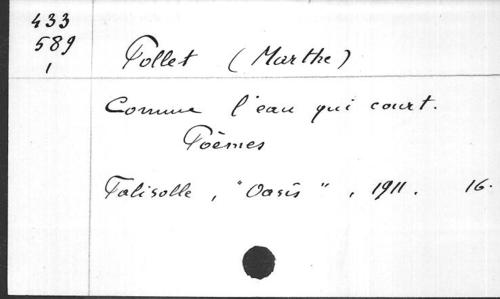 433
589
1
Follet (Marthe)
Comme l'eau qui court.
Poèmes
Falisolle, "Oasis", 1911. 16.